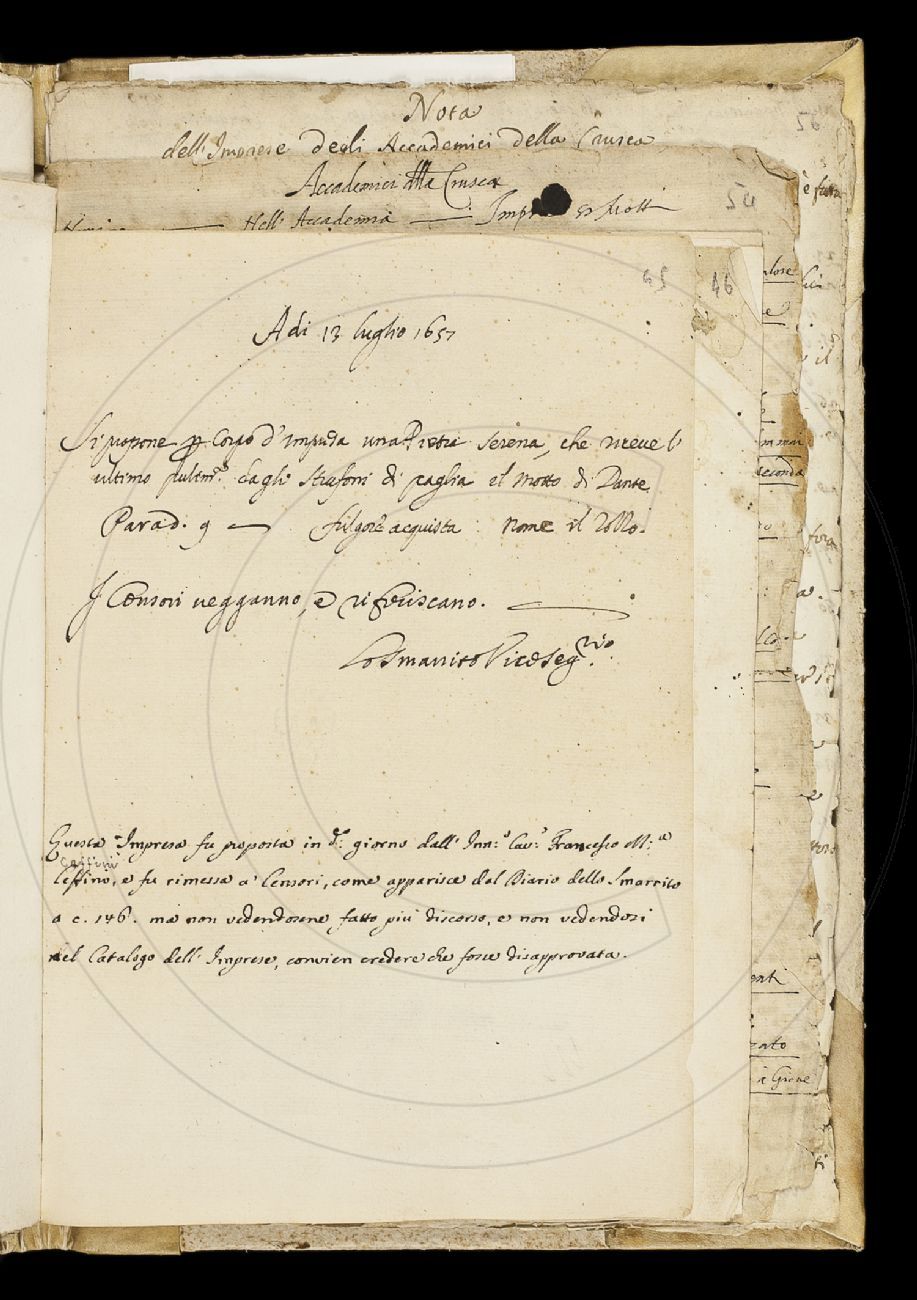 Nota
dell'Imprese degli Accademici della Crusca
Accademici della Crusca
56
54
Nell' Accademia
è fatta
45
46
Adi 13 luglio 1657
Si propone p Corpo d'Impresa una Pietra serena, che riceve l'
ultimo pulim.to dagli strufoni di paglia el Motto di Dante
Parad. 9 — fulgor acquista nome il Zollo.
I Censori uegganno, e riferiscano.
Lo Smarrito Vice Seg.rio
Questa Impresa fu proposta in d.o giorno dall' Inn.o Cav.r Francesco M.a
Ceffini
Ceffino, e fu rimessa a' Censori, come apparisce dal Diario dello Smarrito
a c. 146. ma non vedendosene fatto più discorso, e non vedendosi
nel Catalogo dell' Imprese, convien credere che fosse disapprovata.